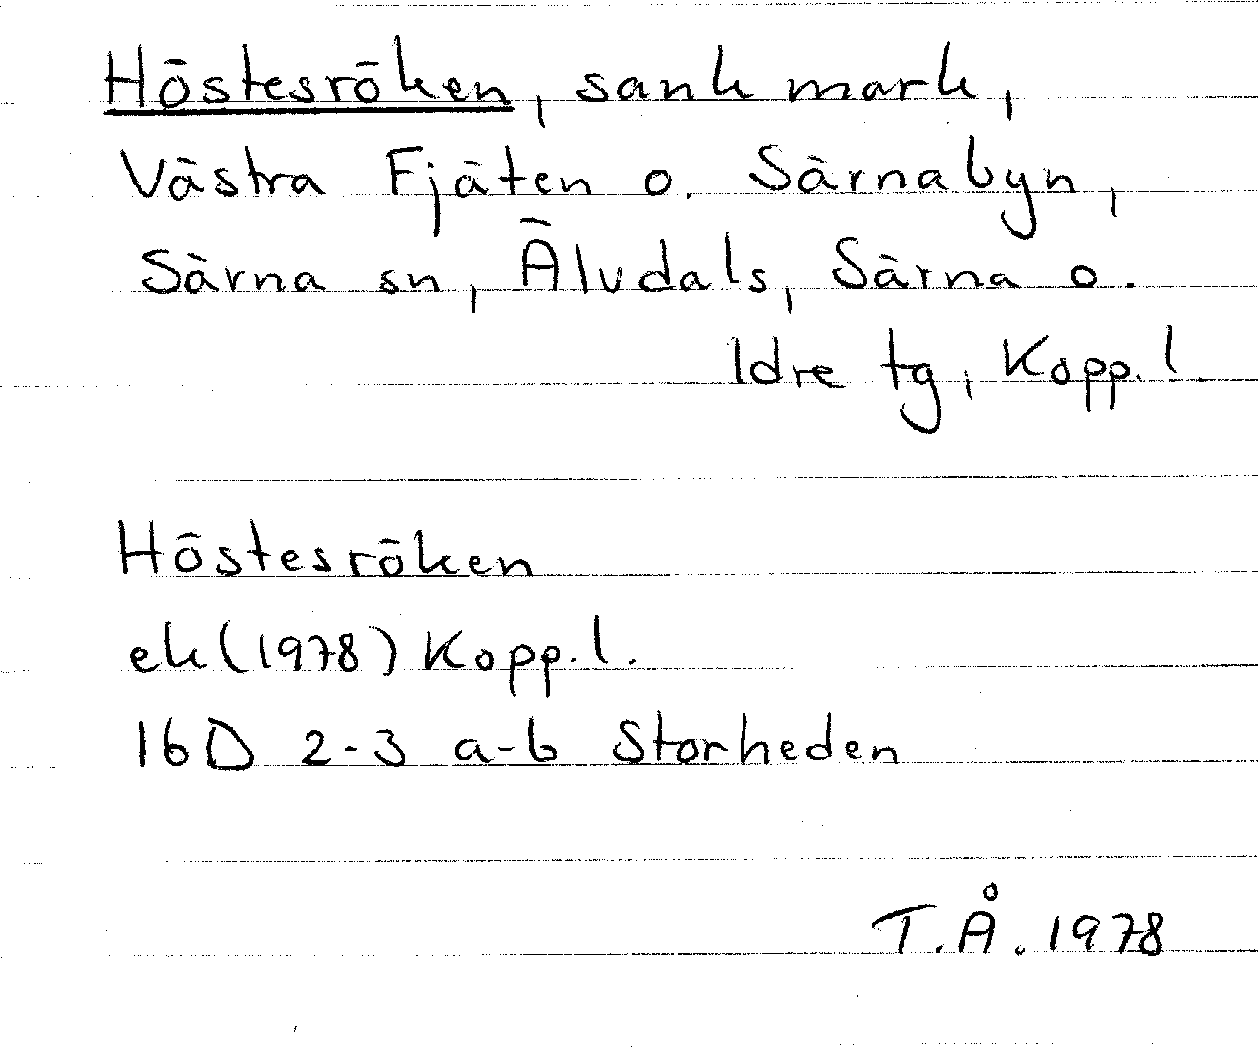 Höstesröken, sank mark,
Västra Fjäten o. Särnabyn,
Särna sn, Älvdals, Särna o.
Idre tg, Kopp. l
Höstesröken
ek (1978) Kopp. l.
16D 2-3 a-b Storheden
T.Å. 1978